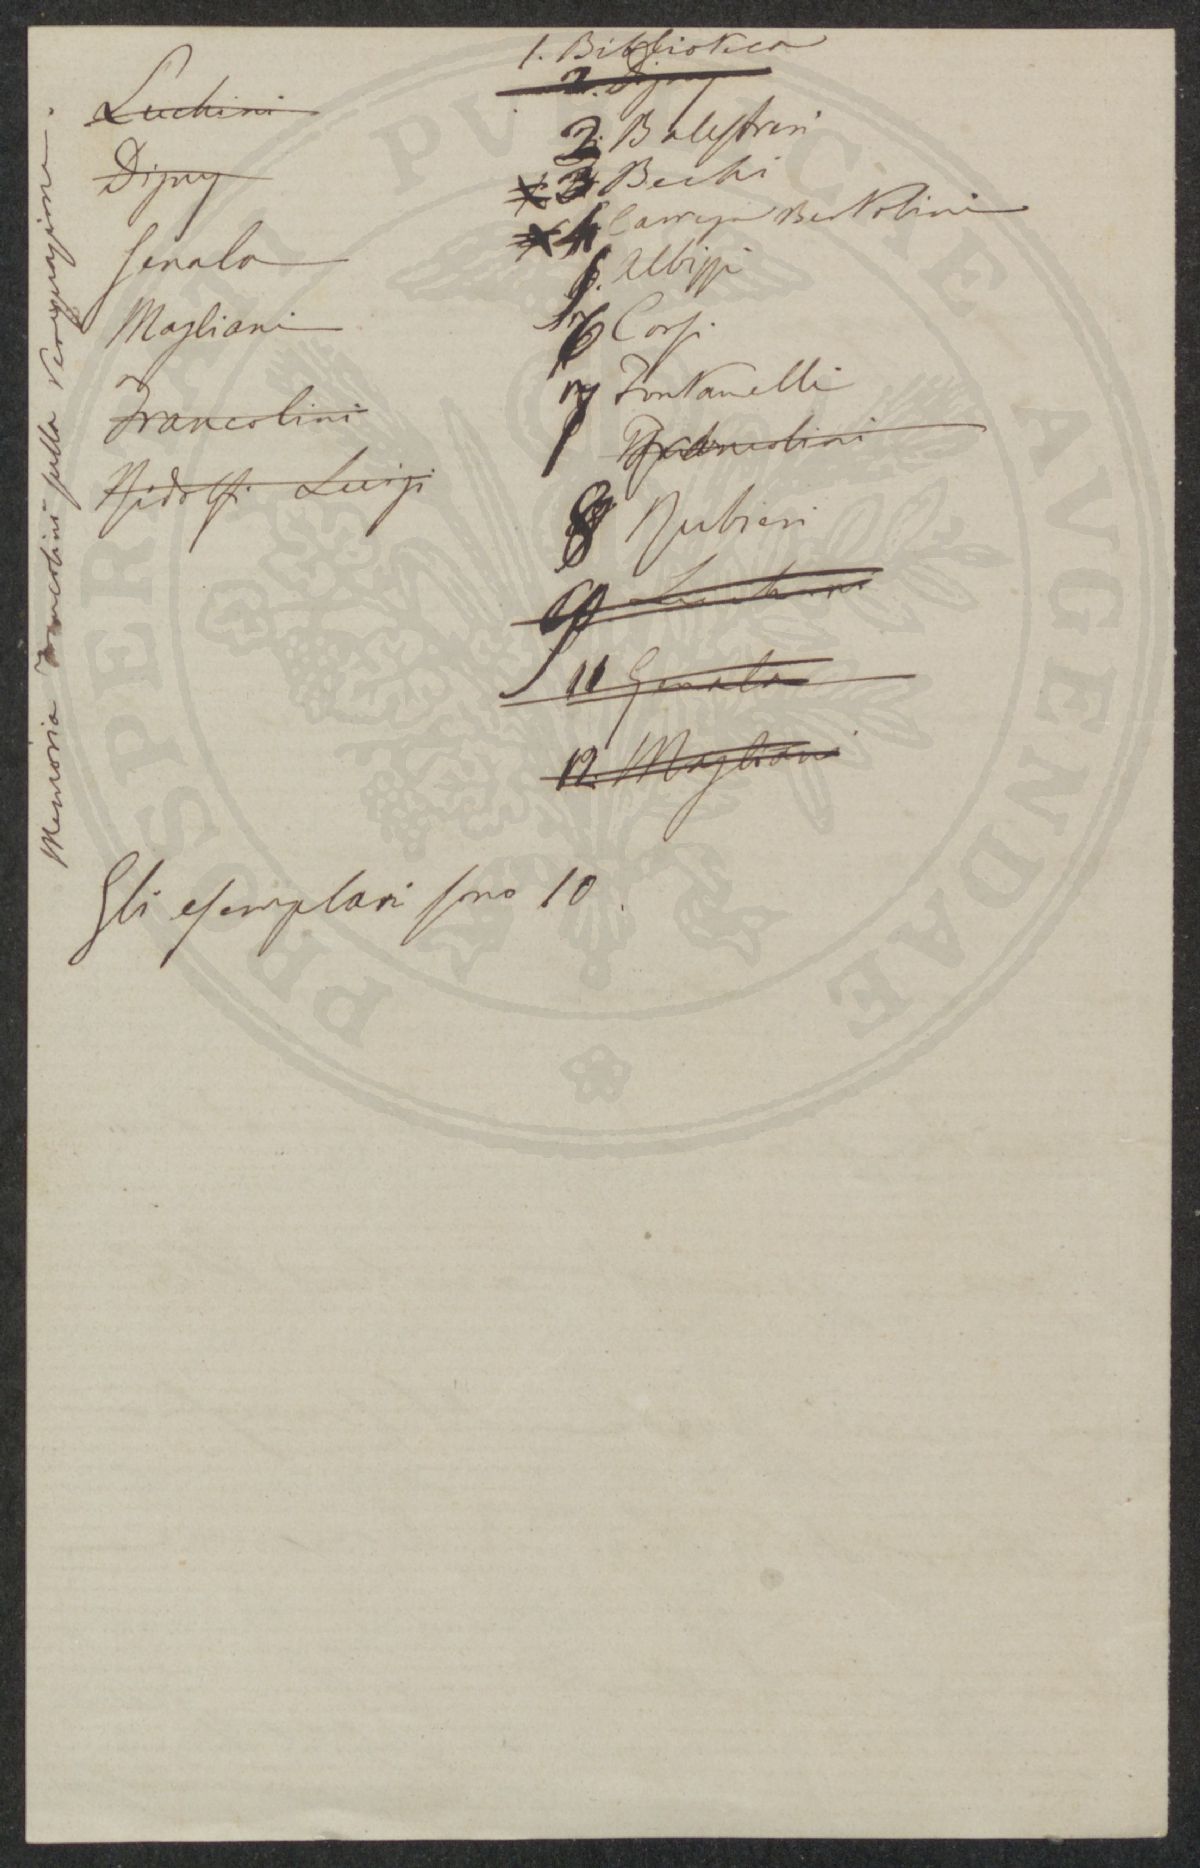 Memoria Francolini sulla Perequazione.
Luchini
Digny
Genala
Magliani
Francolini
Ridolfi Luigi
1. Biblioteca
2. Digny
2. Balestreri
3 Bechi
4 Carrega Bertolini
5. Albizzi
6 Corsi
7 Fontanelli
Francolini
8 Rubieri
Luchini
11 Genala
12. Magliani
Gli esemplari sono 10.
PROSPERITATI PVBLICAE AVGENDAE